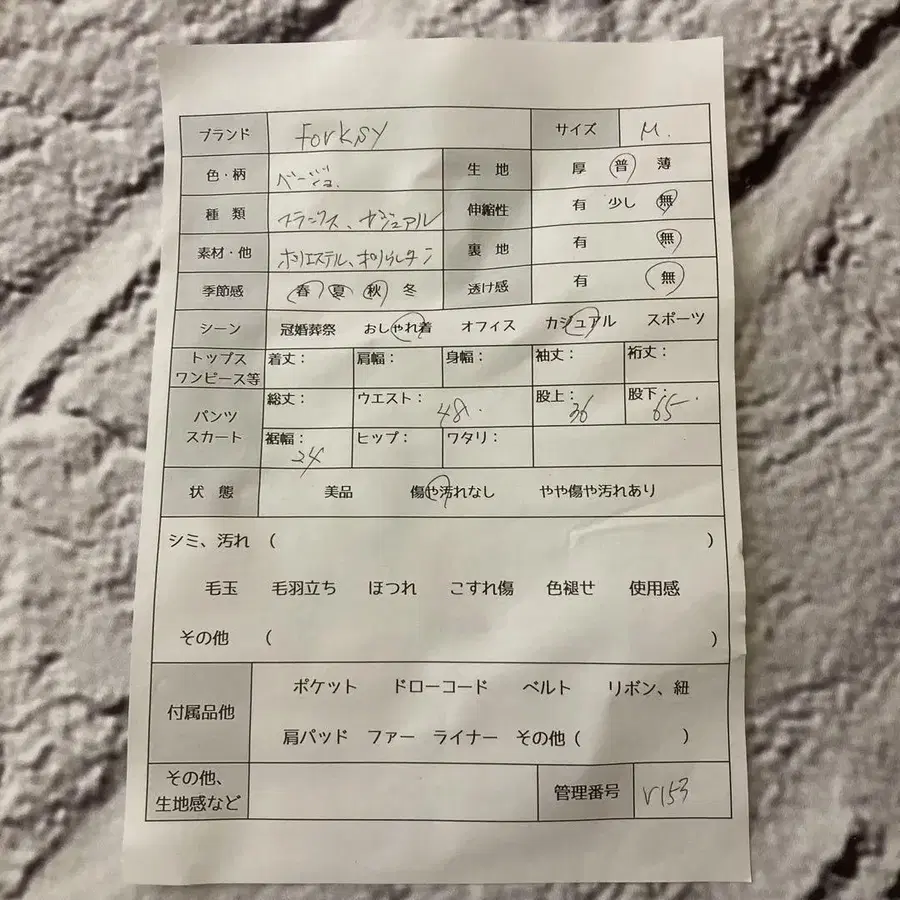 ブランド FORKNY サイズ M.
色・柄 ベージュ. 生 地 厚 普 薄
種 類 スラックス、カジュアル 伸縮性 有 少し 無
素材・他 ポリエステル、ポリウレタン 裏 地 有 無
季節感 春 夏 秋 冬 透け感 有 無
シーン 冠婚葬祭 おしゃれ着 オフィス カジュアル スポーツ
トップス ワンピース等 着丈： 肩幅： 身幅： 袖丈： 裄丈：
パンツ スカート 総丈： ウエスト： 48. 股上： 36 股下： 65.
裾幅： 24 ヒップ： ワタリ：
状 態 美品 傷や汚れなし やや傷や汚れあり
シミ、汚れ （ ）
毛玉 毛羽立ち ほつれ こすれ傷 色褪せ 使用感
その他 （ ）
付属品他 ポケット ドローコード ベルト リボン、紐
肩パッド ファー ライナー その他（ ）
その他、 生地感など 管理番号 V153